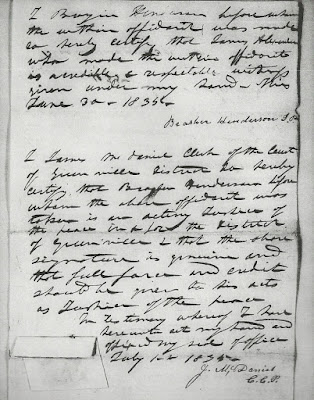 I Brazier Henderson before whom
the within affidavit was made
do hereby certify that James
who made the within affidavit
is a credible & respectable witness
given under my hand this
June 30 - 1835
Brasher Henderson
I James McDaniel Clerk of the Court
of Greenville District do hereby
certify that Henderson before
whom the above affidavit was
taken is an acting Justice of
the peace in & for the District
of Greenville & that the above
signature is genuine and
that full faith and credit
should be given to his acts
as Justice of the peace
In Testimony whereof I have
hereunto set my hand and
affixed my seal of office
July 1st 1835
J. McDaniel
C.C.P.